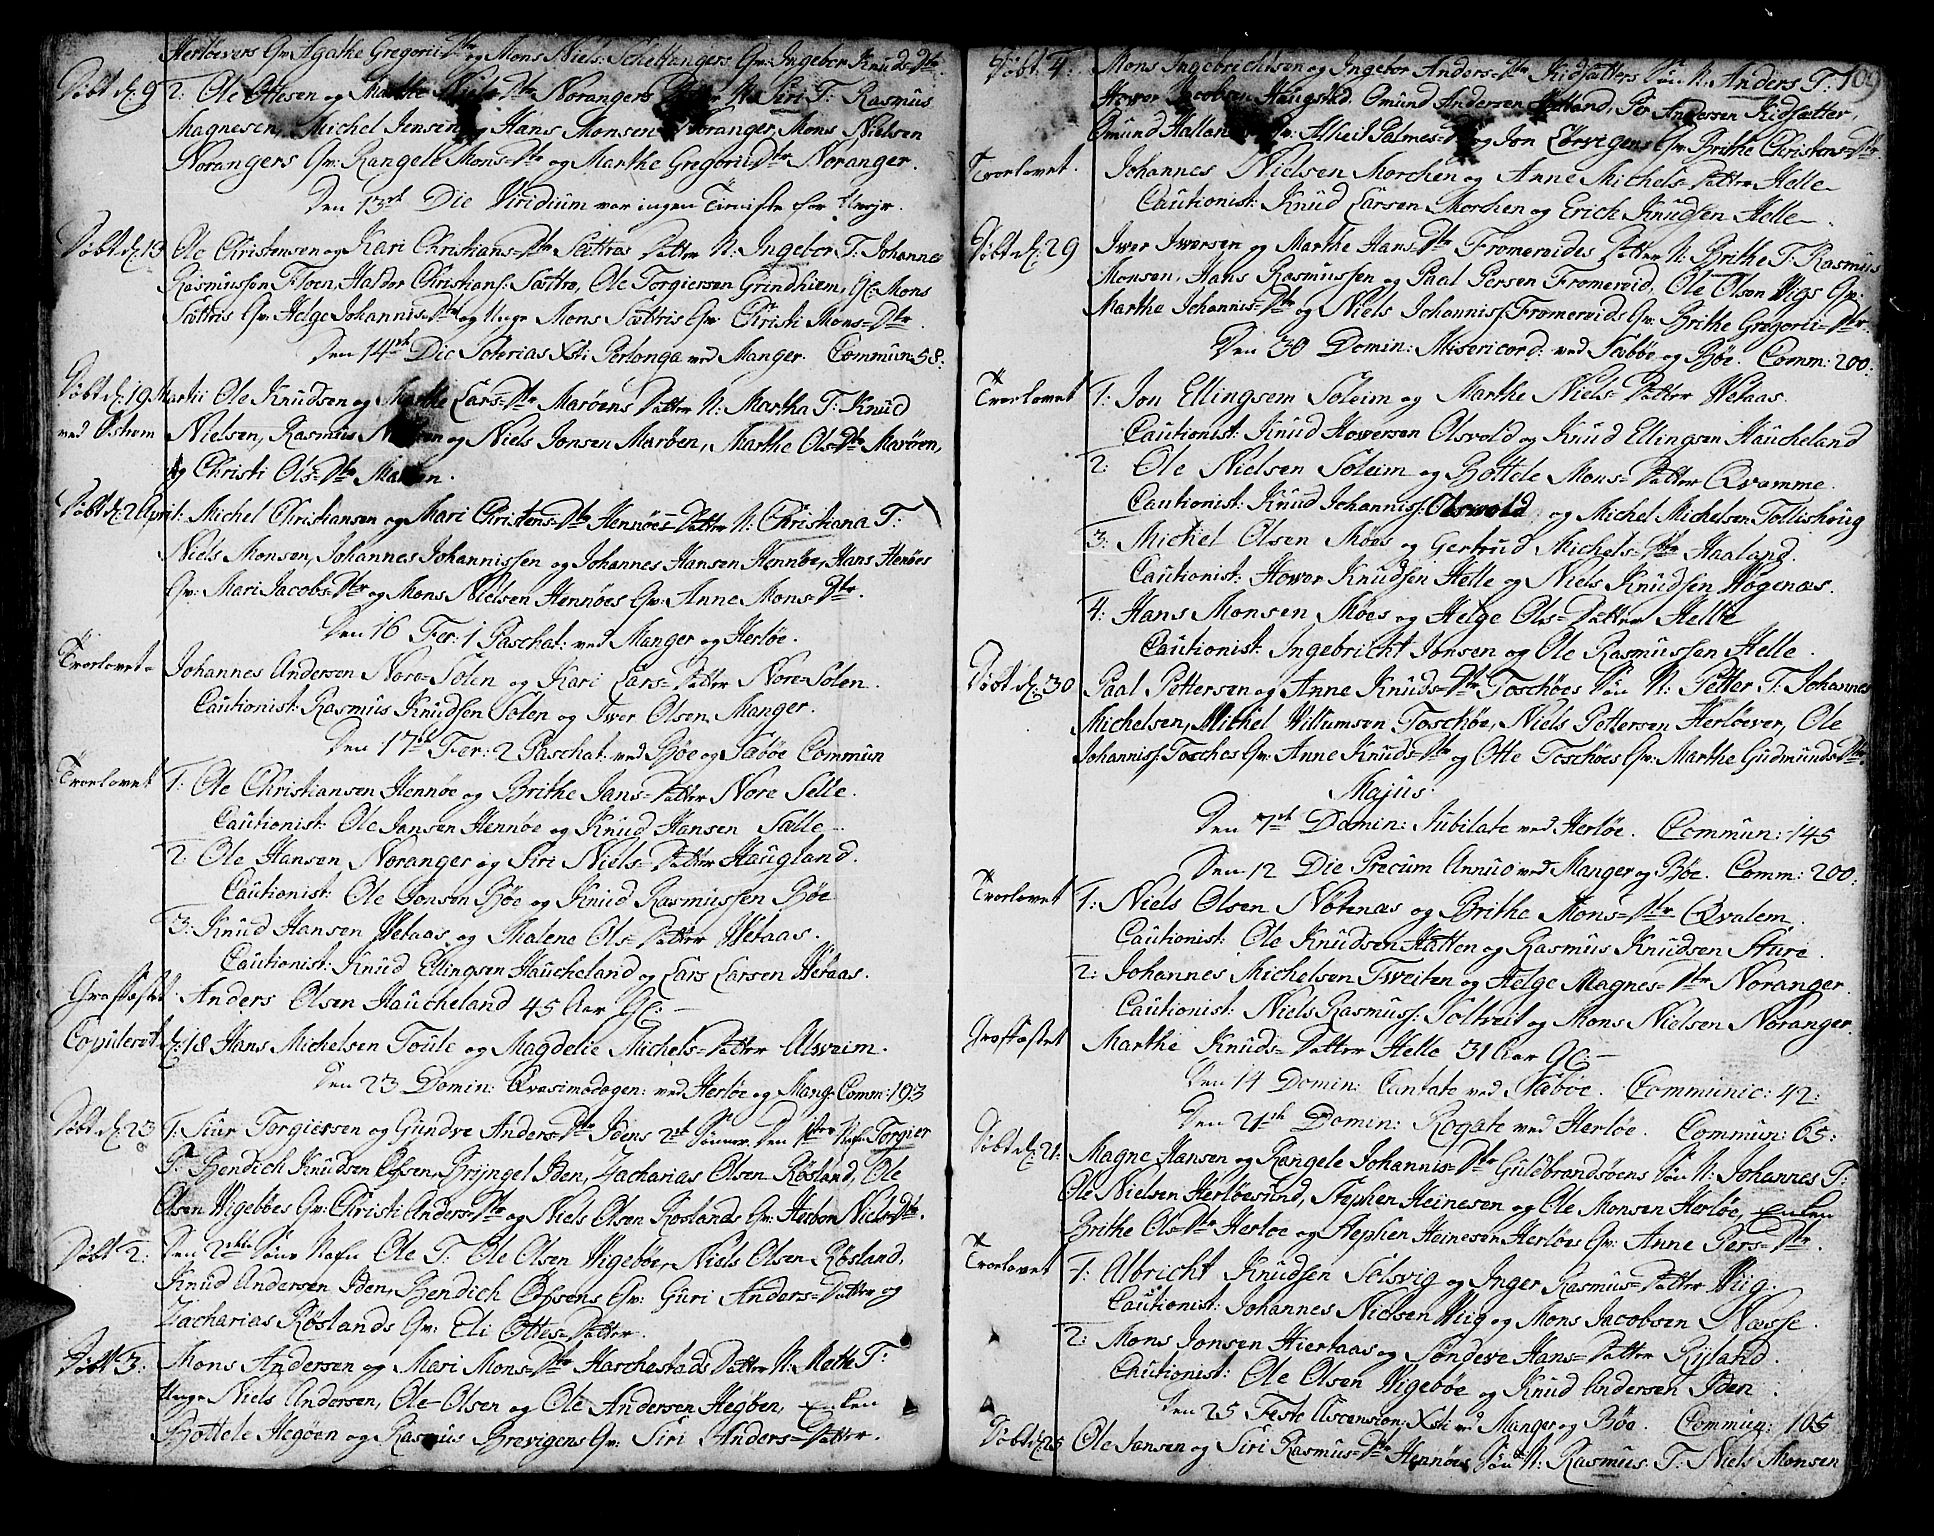 Herløevers Qv: Agathe Gregorii=Dtr og Mons Niels: Schellangers Qv: Ingebor Knuds=Dtr.
Døbt d: 9 2: Ole Ottesen og Marthe Niels=Dtr Norangers N: Siri T: Rasmus
Magnesen, Michel Jensen og Hans Monsen Noranger, Mons Nielsen
Norangers Qv: Rangele Mons=Dtr og Marthe Gregorii=Dtr Noranger.
Den 13de Die Viridium var ingen Tieniste for Uvejr.
Døbt d: 13 Ole Christensen og Kari Christians=Dtr Sættres Datter N: Ingebor T: Johannes
Rasmussen Floen, Haldor Christians: Sættre, Ole Torgiersen Grindhiem, Gl: Mons
Sættris Qv: Helge Johannis=Dtr og Unge Mons Sættris Qv: Christi Mons=Dtr.
Den 14de Die Soterias Xsti Perlonga ved Manger. Commun: 58:
Døbt d: 19 Martii Ole Knudsen og Marthe Lars=Dtr Marøens Datter N: Martha T: Knud
ved Østrem Nielsen, Rasmus Nielsen og Niels Jonsen Marøen, Marthe Ols=Dtr Marøen,
og Christi Ols=Dtr Marøen.
Døbt d: 2 April: Michel Christiansen og Mari Christens=Dtr Hennøes Datter N: Christiana T:
Niels Monsen, Johannes Johannissen og Johannes Hansen Hennøe, Hans Henøes
Qv: Mari Jacobs=Dtr og Mons Nielsen Hennøes Qv: Anne Mons=Dtr.
Den 16 Fer: 1 Paschat: ved Manger og Herløe.
Trorlovet Johannes Andersen Nore=Solen og Kari Lars=Datter Nore=Solen.
Cautionist: Rasmus Knudsen Solen og Iver Olsen Manger.
Den 17de Fer: 2 Paschat: ved Bøe og Sæbøe Commun
Trorlovet 1: Ole Christiansen Hennøe og Brithe Jans=Datter Nore Selle.
Cautionist: Ole Jansen Hennøe og Knud Hansen Sælle
2: Ole Hansen Noranger og Siri Niels=Datter Haugland.
Cautionist: Ole Jonsen Bøe og Knud Rasmussen Bøe
3: Knud Hansen Wetaas og Malene Ols=Datter Wetaas.
Cautionist: Knud Ellingsen Haucheland og Lars Larsen Wetaas.
Graffæstet Anders Olsen Haucheland 45 Aar Gl:
Copuleret d: 18 Hans Michelsen Toule og Magdelie Michels=Datter Alveim.
Den 23 Domin: Qvasimodogen: ved Herløe og Mang: Comm: 193
Døbt d: 23 1: Siur Torgiersen og Gundve Anders=Dtr Idens 2de Sønner. Den 1ste Nafn Torgier
T: Bendich Knudsen, Brÿngel Iden, Zacharias Olsen Røsland, Ole
Olsen Vigebøes Qv: Christi Anders=Dtr og Niels Olsen Røslands Qv: Herbor Niels=Dtr.
Døbt 2: Den 2den Søns Nafn Ole T: Ole Olsen Vigebøe, Niels Olsen Røsland,
Knud Andersen Iden, Bendich Qv: Guri Anders=Datter og
Zacharias Røslands Qv: Eli Ottes=Datter.
Døbt 3: Mons Andersen og Mari Mons=Dtr Haschestads Datter N: Mette T:
Unge Niels Andersen, Ole Olsen og Ole Andersen Hegøen, Enken
Bottele Hegøen og Rasmus Brevigens Qv: Siri Anders=Datter.
109
Døbt 4: Mons Ingebrichtsen og Ingebor Anders=Dtr Kidsætters Søn N: Anders T:
Hover Jacobsen Haugstad, Omund Andersen, Per Andersen Kidsætter,
Omund Hallands Qv: Palmes=Dtr og Jon Lørvigens Qv: Brithe Christens=Dtr.
Trorlovet. Johannes Nielsen Morchen og Anne Michels=Datter Helle
Cautionist: Knud Larsen Morchen og Erich Knudsen Helle
Døbt d: 29 Iver Iversen og Marthe Hans=Dtr Fromereides Datter N: Brithe T: Rasmus
Monsen, Hans Rasmussen og Paal Persen Fromereid, Ole Olsen Wigs Qv:
Marthe Johannis=Dtr og Niels Johannis: Fromereids Qv: Brithe Gregorii=Dtr.
Den 30 Domin: Misericord: ved Sæbøe og Bøe. Comm: 200:
Trorlovet 1: Jon Ellingsen Soleim og Marthe Niels=Datter Wetaas.
Cautionist: Knud Howersen Olsvold og Knud Ellingsen Haucheland
2: Ole Nielsen Soleim og Bottele Mons=Datter Qvamme.
Cautionist: Knud Johannis: Olsvold og Michel Michelsen Tollishoug
3: Michel Olsen Møes og Gertrud Michels=Dtr Haaland.
Cautionist: Hower Knudsen Helle og Niels Knudsen Wogenæs.
4: Hans Monsen Møes og Helge Ols=Datter Helle
Cautionist: Ingebricht Jonsen og Ole Rasmussen Helle.
Døbt d: 30 Paal Pettersen og Anne Knuds=Dtr Toschøes Søn N: Petter T: Johannes
Michelsen, Michel Villumsen Toschøe, Niels Pettersen Herløever, Ole
Johannis: Tosches Qv: Anne Knuds=Dtr og Otte Toschøes Qv: Marthe Gudmunds=Dtr.
Majus.
Den 7de Domin: Jubilate ved Herløe. Commun: 145
Den 12 Die Precum Annuo ved Manger og Bøe. Comm: 200:
Trorlovet 1: Niels Olsen Nøtenæs og Brithe Mons=Dtr Qvalem.
Cautionist: Ole Knudsen Hatten og Rasmus Knudsen Sture.
2: Johannes Michelsen Tweiten og Helge Magnes=Dtr Noranger.
Cautionist: Niels Rasmuss: Toltveit og Mons Nielsen Noranger.
Graffæstet Marthe Knuds=Datter Helle 31 Aar Gl:
Den 14 Domin: Cantate ved Sæbøe. Communic: 42:
Den 21de Domin: Rogate ved Herløe. Commun: 65:
Døbt d: 21: Magne Hansen og Rangele Johannis=Dtr Guldbrandsøens Søn N: Johannes T:
Ole Nielsen Herløesund, Stephen Heinesen og Ole Monsen Herløe, Enken
Brithe Ols=Dtr Herløe og Stephen Heinesen Herløes Qv: Anne Pers=Dtr.
Trorlovet 1: Albricht Knudsen Solsvig og Inger Rasmus=Datter Wiig.
Cautionist: Johannes Nielsen Wiig og Mons Jacobsen Næsse.
2: Mons Jonsen Hiertaas og Søndeve Hans=Datter Ryland.
Cautionist: Ole Olsen Vigebøe og Knud Andersen Iden.
Den 25 Festo Ascension: Xsti v: Manger og Bøe. Commun: 105
Døbt d: 25 Ole Jansen og Siri Rasmus=Dtr Hennøes Søn N: Rasmus T: Niels Monsen